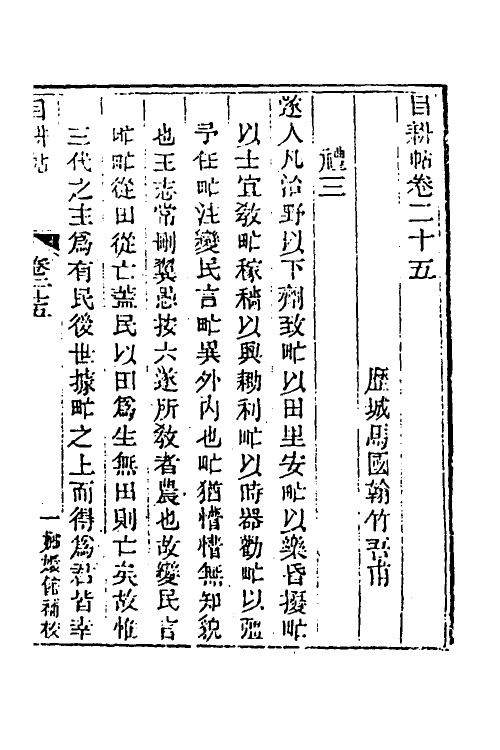 目耕帖卷二十五
歷城馬國翰竹吾甫
禮三
遂人凡治野以下劑致甿以田里安甿以樂昏擾甿
以土宜敎甿稼穡以興耡利甿以時器勸甿以彊
予任甿注變民言甿異外內也甿猶懵懵無知貌
也王志常刪翼愚按六遂所敎者農也故變民言
甿甿從田從亡蓋民以田爲生無田則亡矣故惟
三代之主爲有民後世據甿之上而得爲君皆幸
目耕帖
卷二十五
一
補校